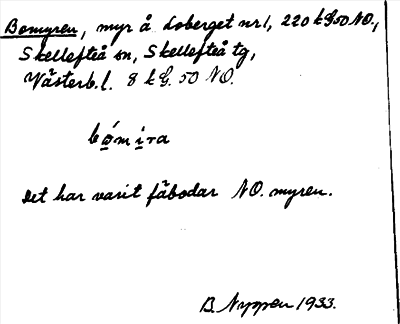 Bomyren, myr å Loberget nr 1, 220 k G. 50 NO.,
Skellefteå sn, Skellefteå tg,
Västerb. l. 8 k G. 50 NO.
bo̱mi̱ra
Det har varit fäbodar NO. myren.
B. Nyppen 1933.